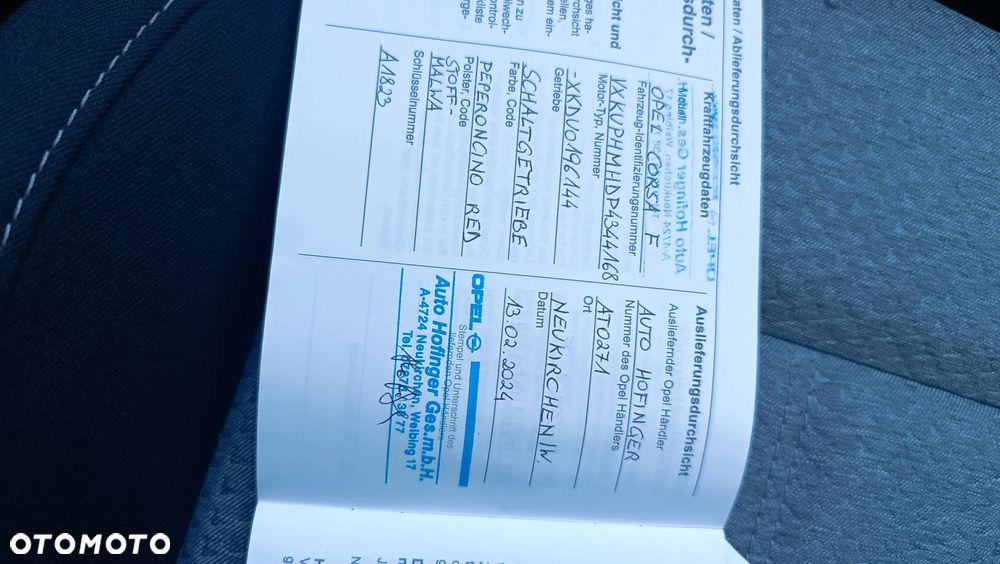 aten / Ablieferungsdurchsicht
ten /
sdurch-
icht und
ges ha-
rchsicht
ellen,
em ein-
n zu
ilwech-
ontrol-
kliste
rge-
Kraftfahrzeugdaten
Modell
OPEL CORSA F
Fahrzeug-Identifizierungsnummer
VXKUPHMHDP4344168
Motor-Typ, Nummer
-XKDV0196144
Getriebe
SCHALTGETRIEBE
Farbe, Code
PEPERONCINO RED
Polster, Code
STOFF-
MALWA
Schlüsselnummer
A1823
Auslieferungsdurchsicht
Ausliefernder Opel Händler
AUTO HOFINGER
Nummer des Opel Händlers
AT0271
Ort
NEUKIRCHEN/W.
Datum
13.02.2024
Stempel und Unterschrift des
liefernden Opel Händlers
OPEL
Auto Hofinger Ges.m.b.H.
A-4724 Neukirchen, Weibing 17
Tel.
77
OTOMOTO